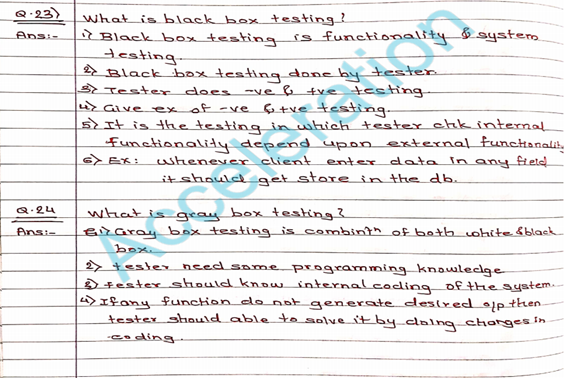 Q.23) What is black box testing?
Ans:- 1) Black box testing is functionality & system
testing.
2) Black box testing done by tester.
3) Tester does -ve & +ve testing.
4) Give ex of -ve & +ve testing.
5) It is the testing in which tester chk internal
functionality depend upon external functionality
6) Ex: whenever client enter data in any field
it should get store in the db.
Q.24 What is gray box testing?
Ans:- 1) Gray box testing is combintn of both white & black
box.
2) tester need some programming knowledge
3) tester should know internal coding of the system.
4) If any function do not generate desired o/p then
tester should able to solve it by doing changes in
coding.
Acceleration